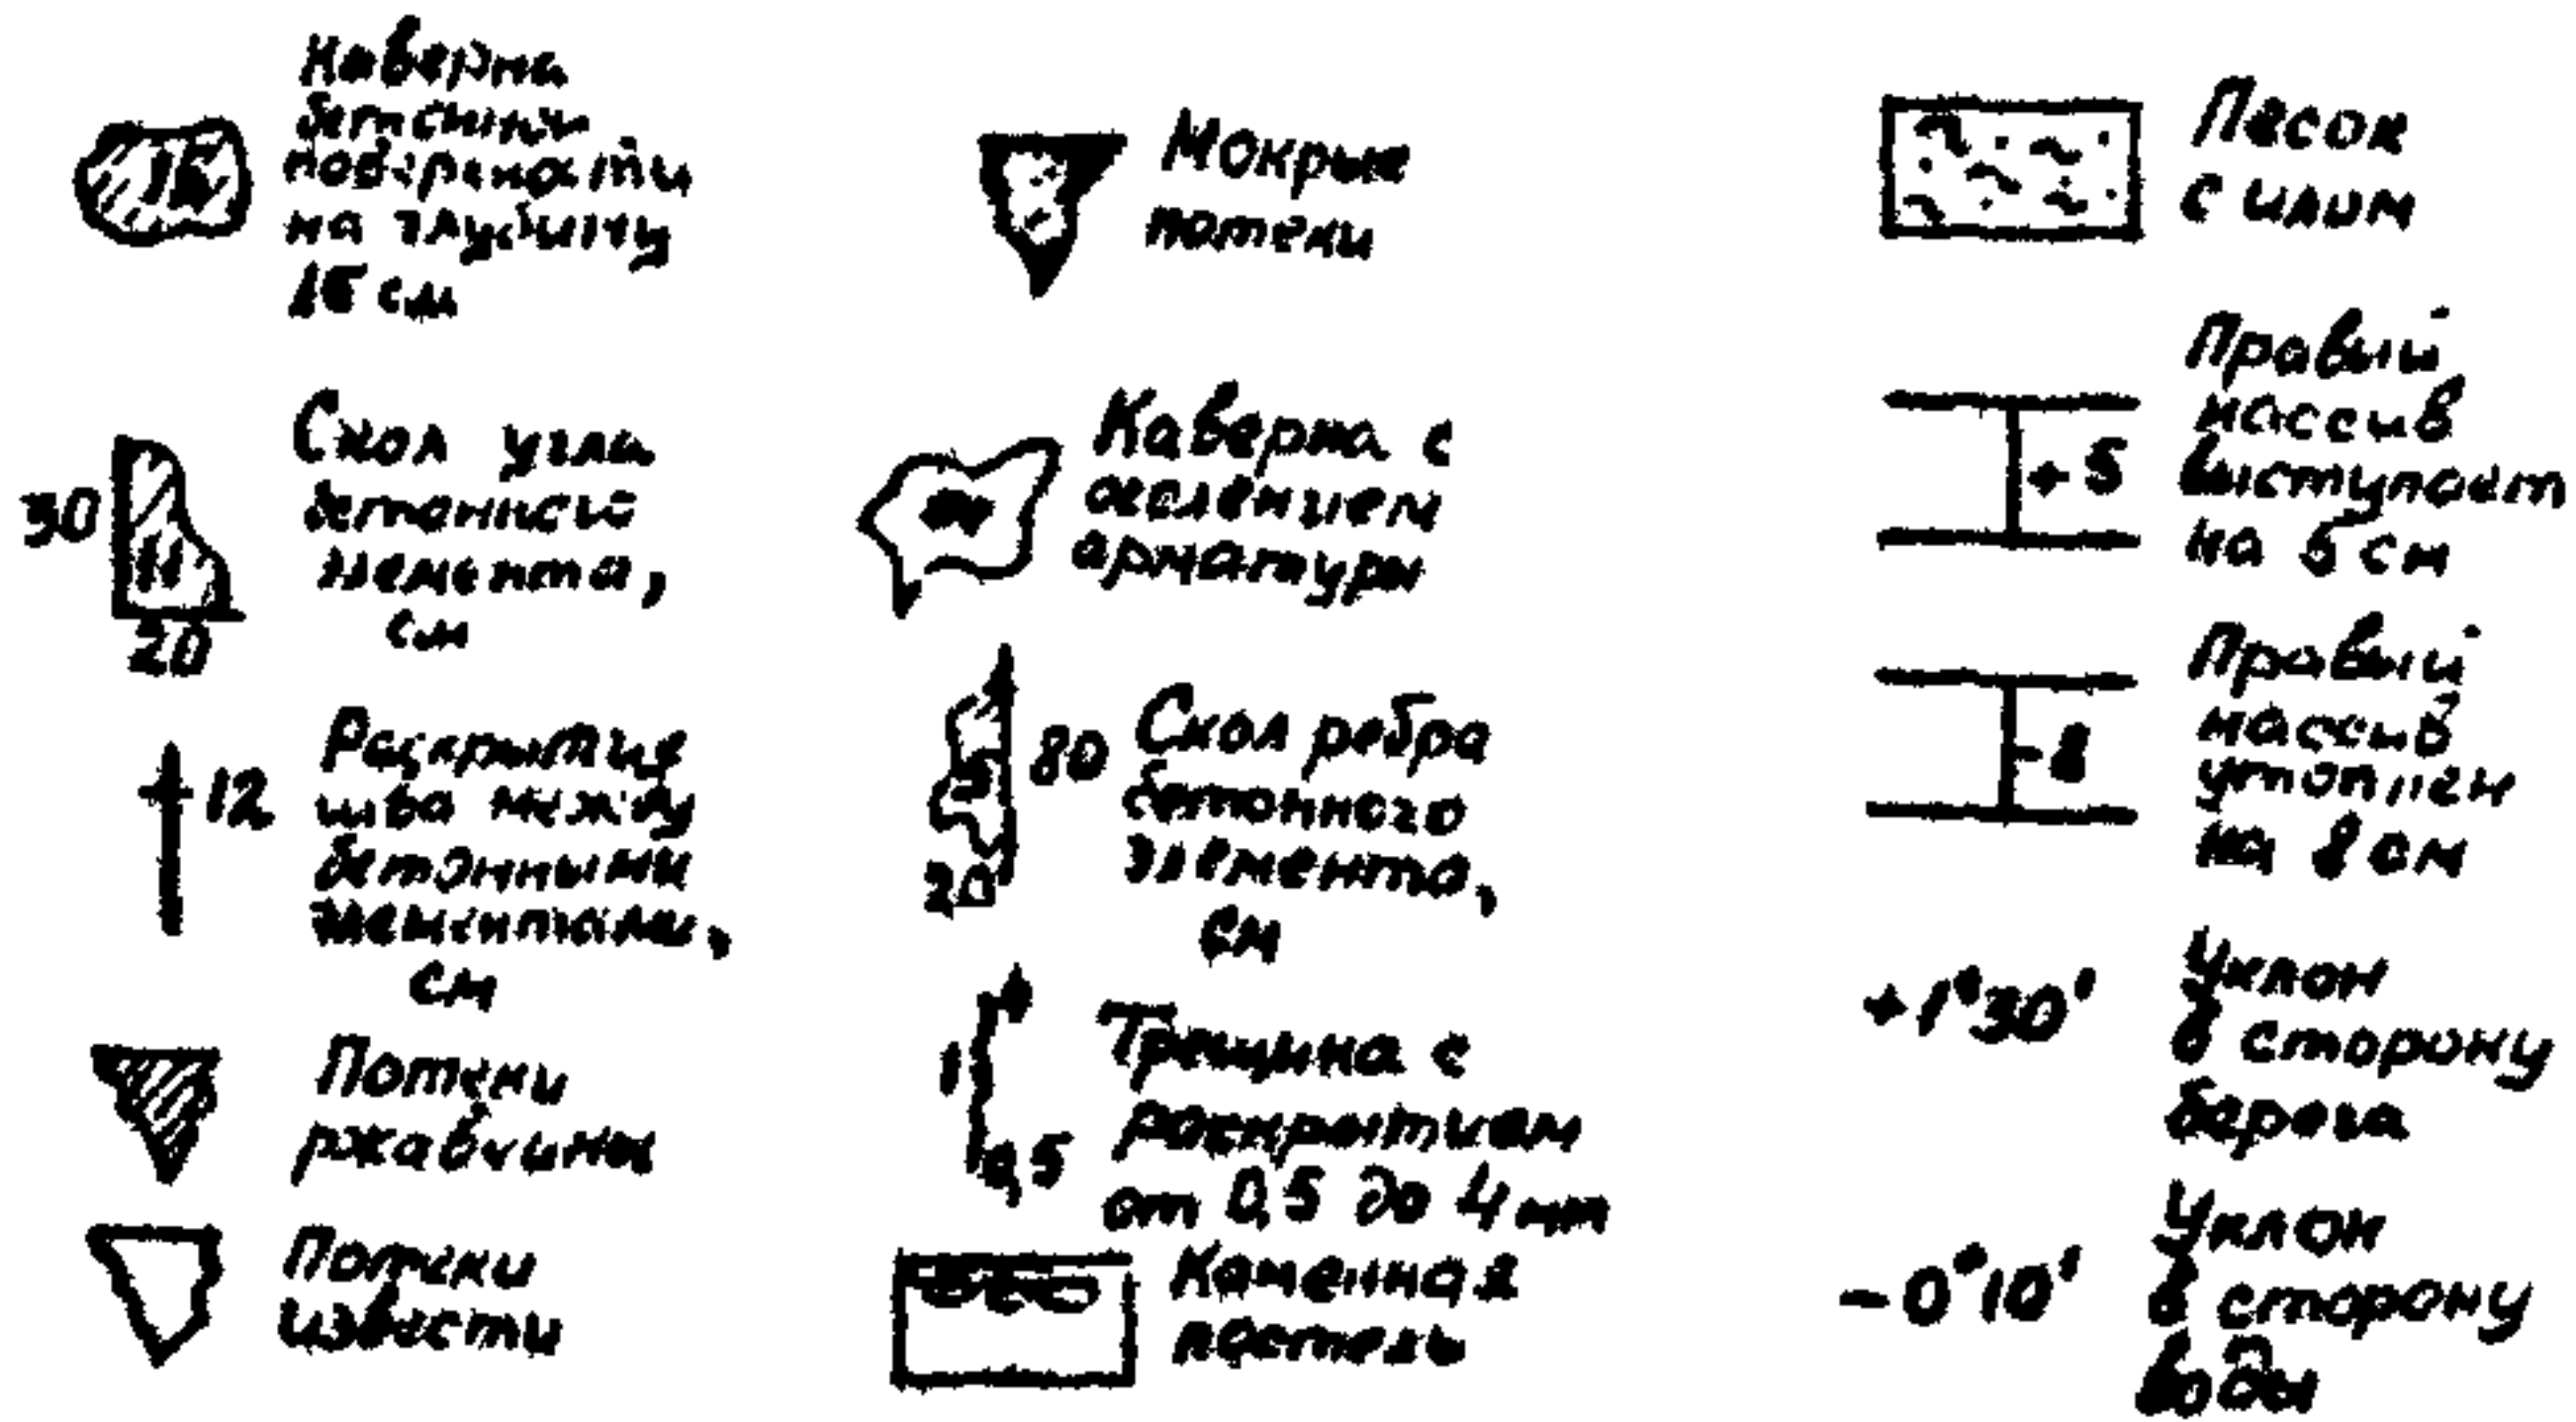 15
Каверна
бетонной
поверхности
на глубину
15 см
30
11
20
Скол угла
бетонного
элемента,
см
12
Раскрытие
шва между
бетонными
элементами,
см
Потеки
ржавчины
Потеки
извести
Мокрые
потеки
Каверна с
оголением
арматуры
80
5
20
Скол ребра
бетонного
элемента,
см
1
0,5
Трещина с
раскрытием
от 0,5 до 4 мм
Каменная
постель
Песок
с илом
+5
Правый
массив
выступает
на 5 см
-8
Правый
массив
утоплен
на 8 см
+1°30'
Уклон
в сторону
берега
-0°10'
Уклон
в сторону
воды